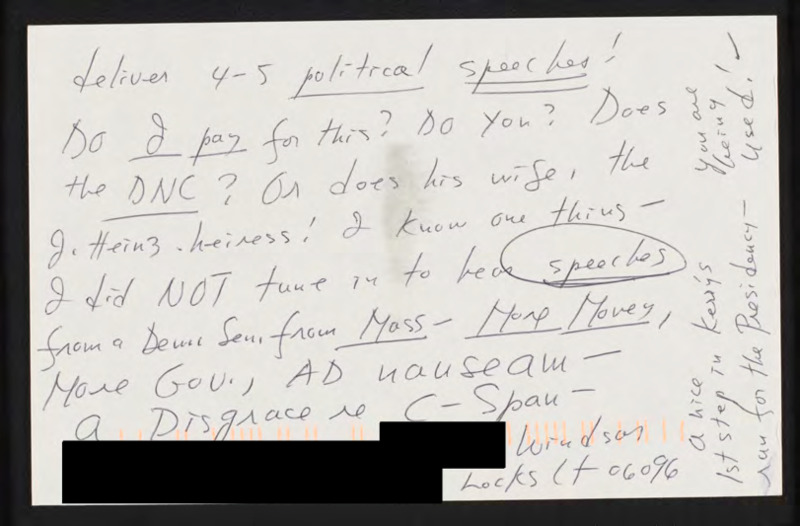 deliver 4-5 political speeches!
Do I pay for this? Do you? Does
the DNC? Or does his wife, the
J. Heinz heiress! I know one thing -
I did NOT tune in to hear speeches
from a Dem. Sen. from Mass - More Money,
More Gov., AD nauseam -
a Disgrace re C-Span -
Windsor
Locks Ct 06096
a nice
1st step in Kerry's
run for the Presidency -
You are
being
used!